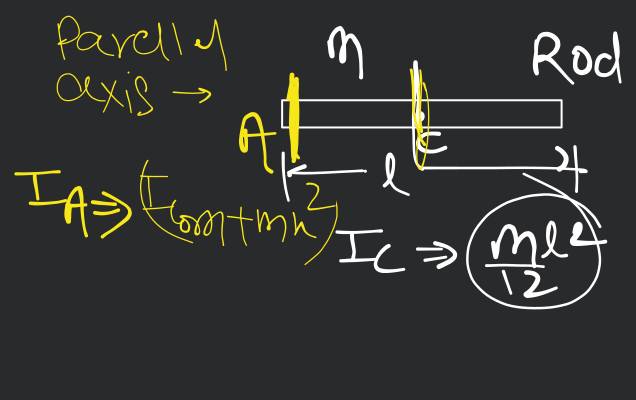 Parallel
axis →
m
Rod
A
C
l
I_A ⇒ (I_com + mh²)
I_C ⇒ ml²/12